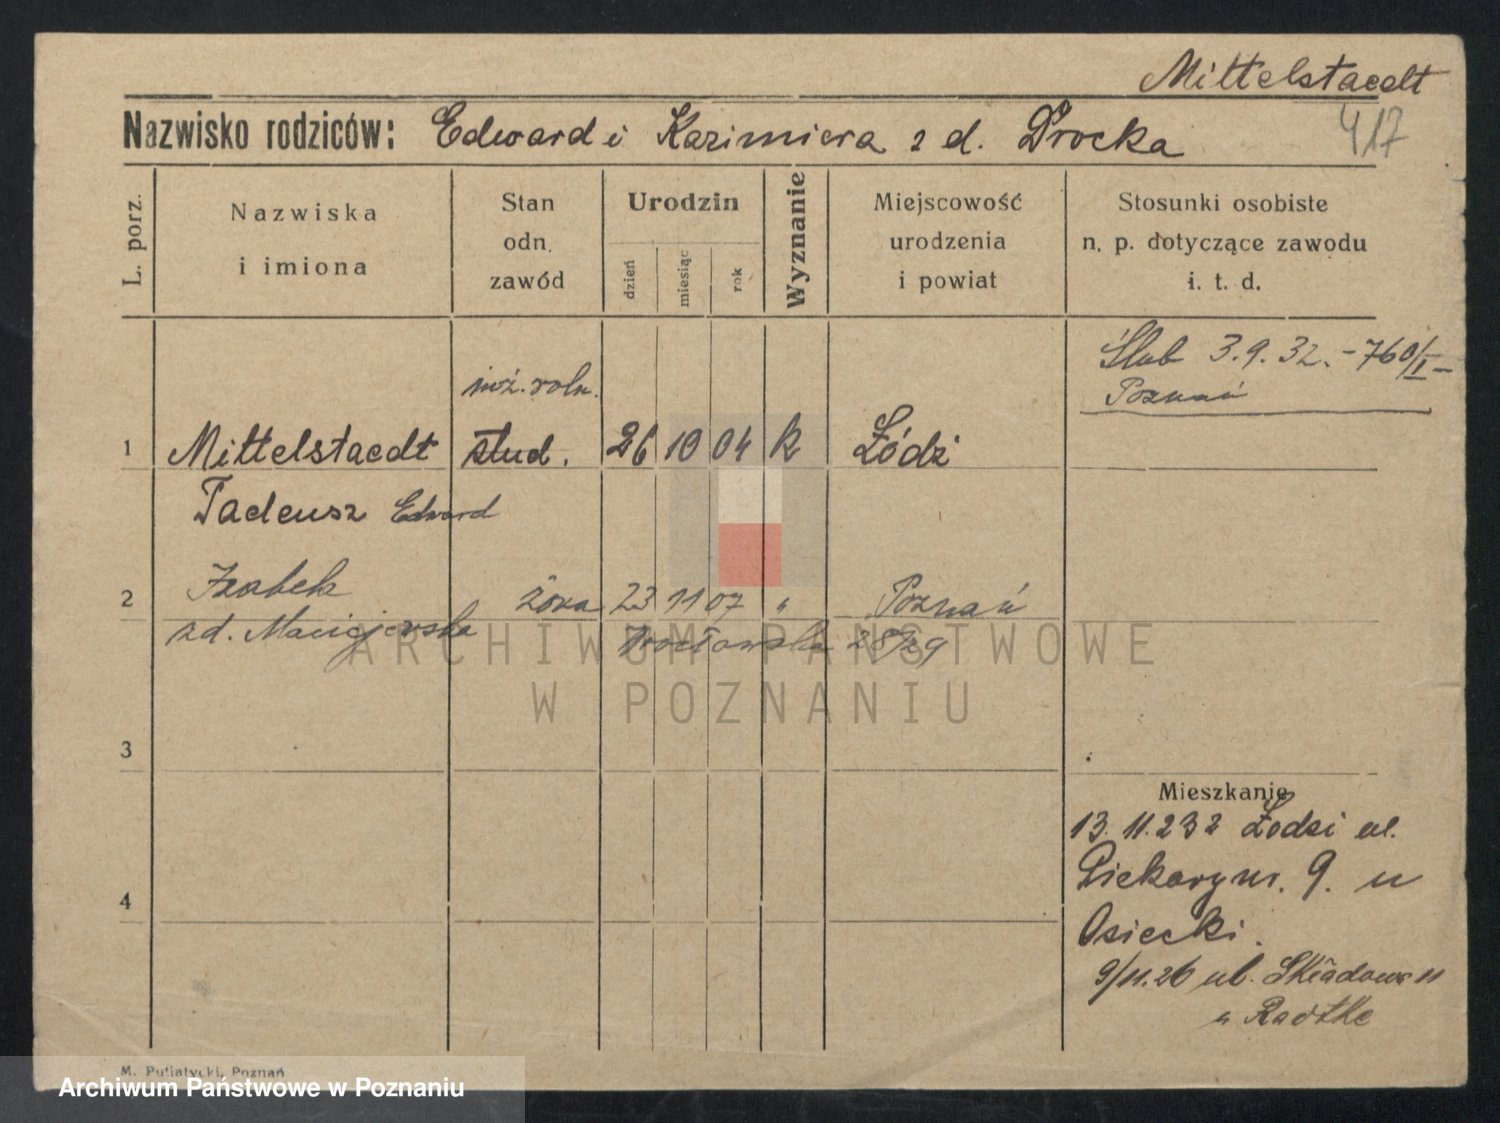 Mittelstaedt
417
Nazwisko rodziców: Edward i Kazimiera z d. Drocka
L. porz.
Nazwiska
i imiona
Stan
odn.
zawód
Urodzin
dzień
miesiąc
rok
Wyznanie
Miejscowość
urodzenia
i powiat
Stosunki osobiste
n. p. dotyczące zawodu
i. t. d.
Ślub 3.9.32. - 760/I -
Poznań
inż. roln.
1 Mittelstaedt stud. 26 10 04 k Łódź
Tadeusz Edward
2 Izabela żona 23 11 07 " Poznań
z d. Maciejewska Wrocławska 28/29
3
4
Mieszkanie
13.11.23 z Łodzi ul.
Piekary nr. 9. u
Osiecki.
9/11.26 ul. Składowa 11
u Radtke
M. Putiatycki, Poznań
ARCHIWUM PAŃSTWOWE
W POZNANIU
Archiwum Państwowe w Poznaniu